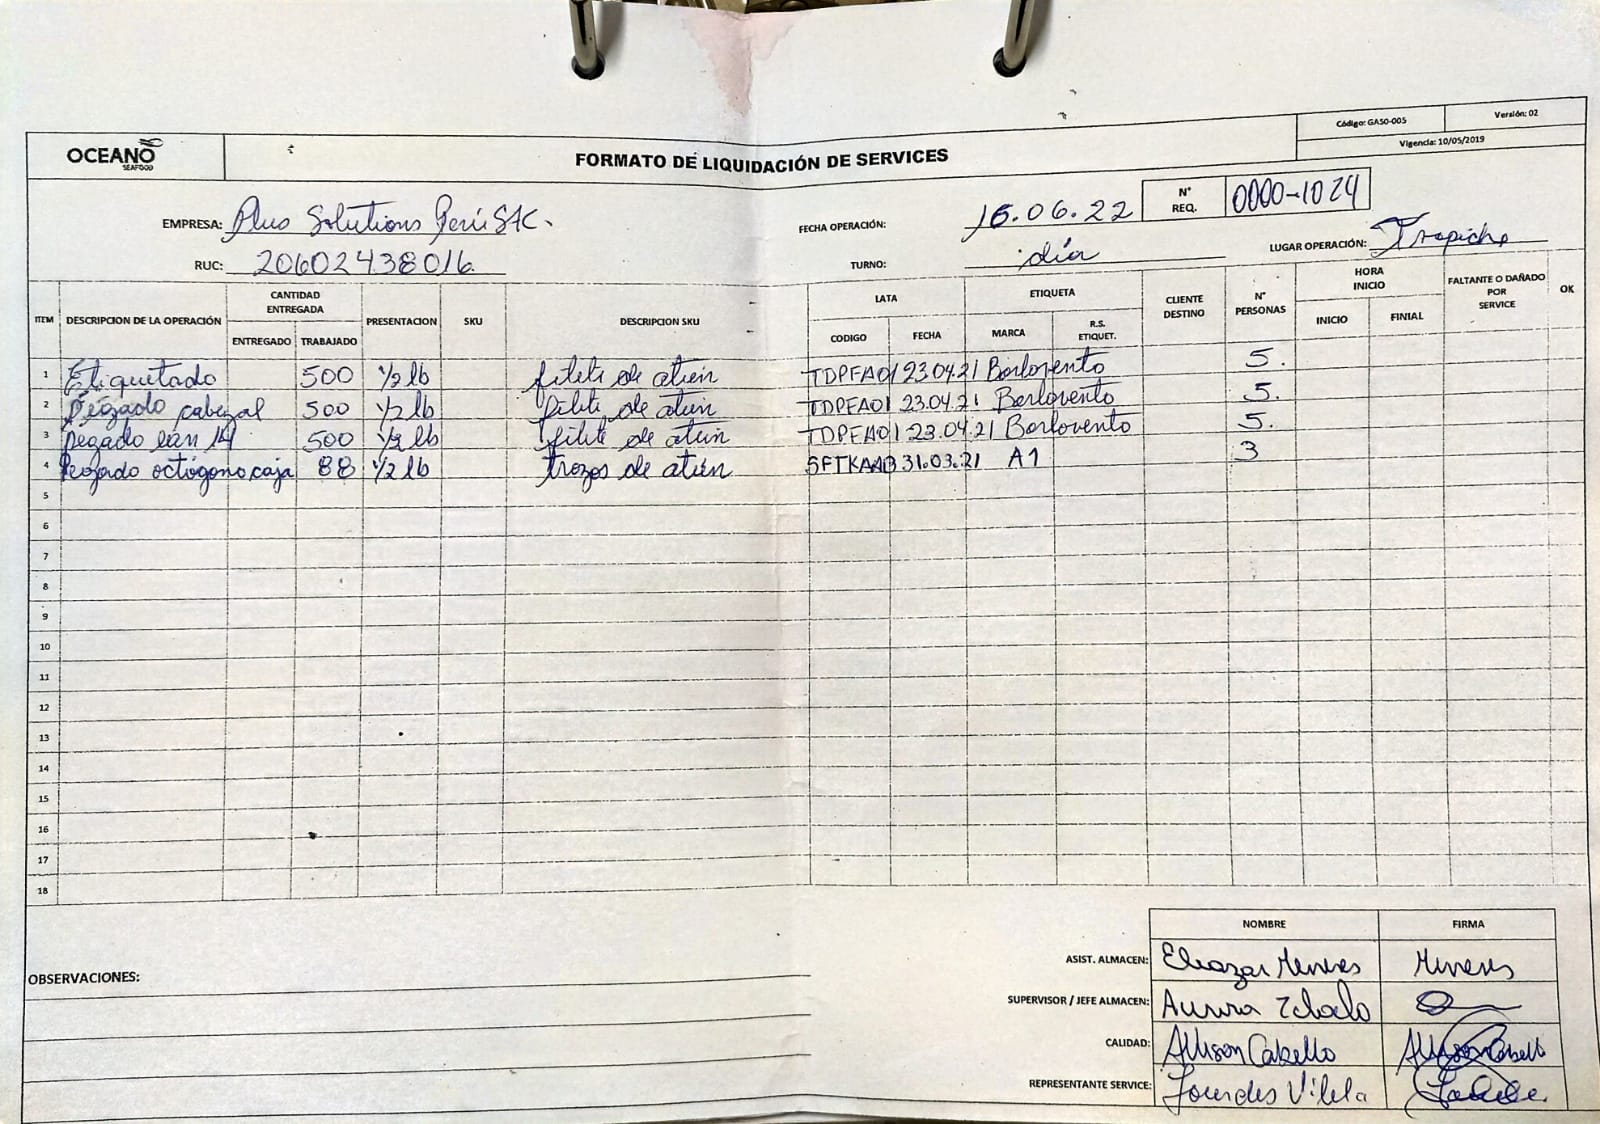 Código: GASO-005 Versión: 02
OCEANO SEAFOOD
FORMATO DE LIQUIDACIÓN DE SERVICES
Vigencia: 10/05/2019
EMPRESA: Plus Solutions Perú SAC.
FECHA OPERACIÓN: 15.06.22
N° REQ. 0000-1024
RUC: 20602438016
TURNO: día
LUGAR OPERACIÓN: Trapiche
ITEM DESCRIPCION DE LA OPERACIÓN CANTIDAD ENTREGADA PRESENTACION SKU DESCRIPCION SKU LATA ETIQUETA CLIENTE DESTINO N° PERSONAS HORA INICIO FALTANTE O DAÑADO POR SERVICE OK
ENTREGADO TRABAJADO CODIGO FECHA MARCA R.S. ETIQUET. INICIO FINIAL
1 Etiquetado 500 1/2 lb filete de atún TDPFA01 23.04.21 Barlovento 5.
2 Pegado cabezal 500 1/2 lb filete de atún TDPFA01 23.04.21 Barlovento 5.
3 Pegado ean 14 500 1/2 lb filete de atún TDPFA01 23.04.21 Barlovento 5.
4 Pegado octógono caja 88 1/2 lb trozos de atún 31.03.21 A1 3
5
6
7
8
9
10
11
12
13
14
15
16
17
18
NOMBRE FIRMA
OBSERVACIONES:
ASIST. ALMACEN: Eleazar Meneses Meneses
SUPERVISOR / JEFE ALMACEN: Aurora
CALIDAD: Allison Cabello Allison Cabello
REPRESENTANTE SERVICE: Lourdes Vilela